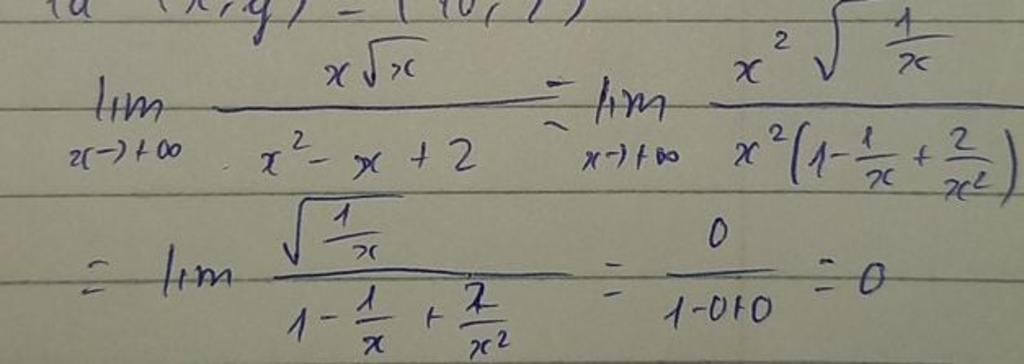 (x, y) = (
lim x→+∞ x√x / (x² - x + 2) = lim x→+∞ x² √(1/x) / x²(1 - 1/x + 2/x²)
= lim √(1/x) / (1 - 1/x + 2/x²) = 0 / (1-0+0) = 0